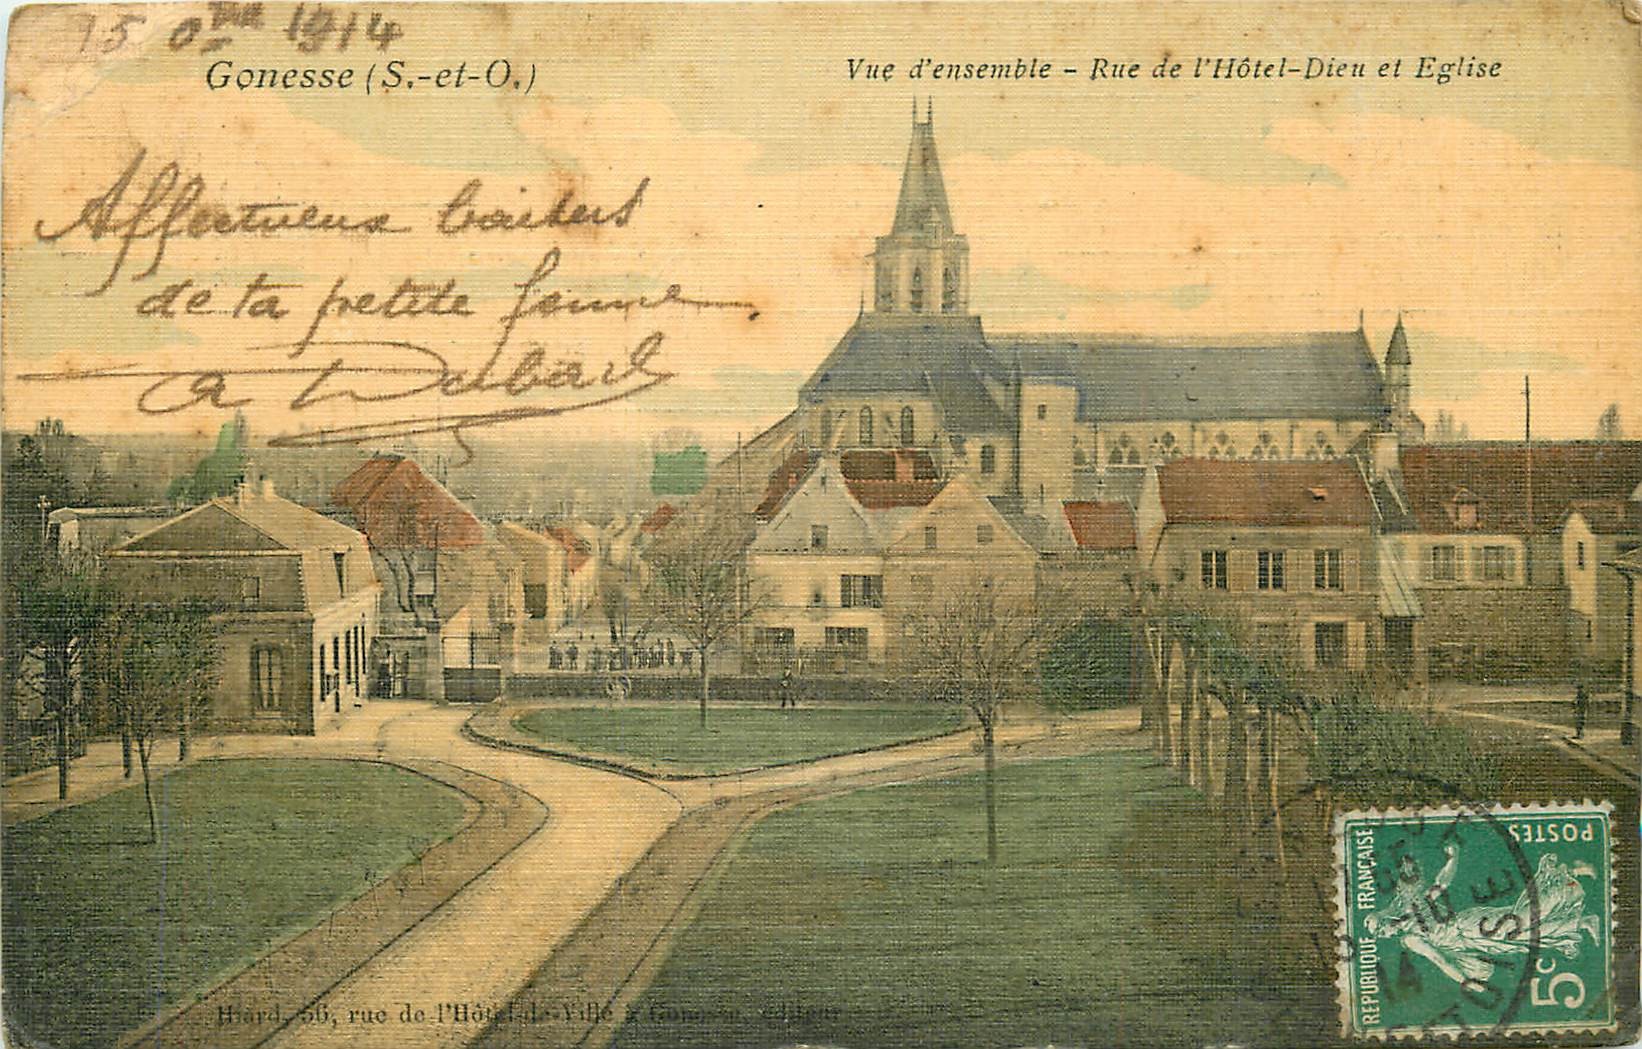 15 8bre 1914
Gonesse (S.-et-O.)
Vue d'ensemble - Rue de l'Hôtel-Dieu et Eglise
Affectueux baisers
de ta petite femme.
a Dubail
Hiard, 56, rue de l'Hôtel-de-Ville à Gonesse, éditeur
REPUBLIQUE FRANÇAISE
POSTES
5c